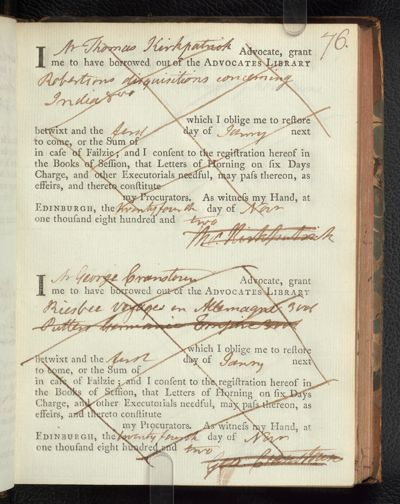 76.
I Mr Thomas Kirkpatrick Advocate, grant
me to have borrowed out of the ADVOCATES LIBRARY
Robertsons disquisitions concerning
India 8vo
which I oblige me to reſtore
betwixt and the first day of Janry next
to come, or the Sum of
in caſe of Failzie; and I conſent to the regiſtration hereof in
the Books of Seſſion, that Letters of Horning on ſix Days
Charge, and other Executorials needful, may paſs thereon, as
effeirs, and thereto conſtitute
my Procurators. As witneſs my Hand, at
EDINBURGH, the twenty fourth day of Novr
one thouſand eight hundred and two
Tho Kirkpatrick
I Mr George Cranstoun Advocate, grant
me to have borrowed out of the ADVOCATES LIBRARY
Riesbec Voyages en Allemagne 3 vol
Putters Germanic Empire 3 vol
which I oblige me to reſtore
betwixt and the first day of Janry next
to come, or the Sum of
in caſe of Failzie; and I conſent to the regiſtration hereof in
the Books of Seſſion, that Letters of Horning on ſix Days
Charge, and other Executorials needful, may paſs thereon, as
effeirs, and thereto conſtitute
my Procurators. As witneſs my Hand, at
EDINBURGH, the twenty fourth day of Novr
one thouſand eight hundred and two
Geo Cranstoun